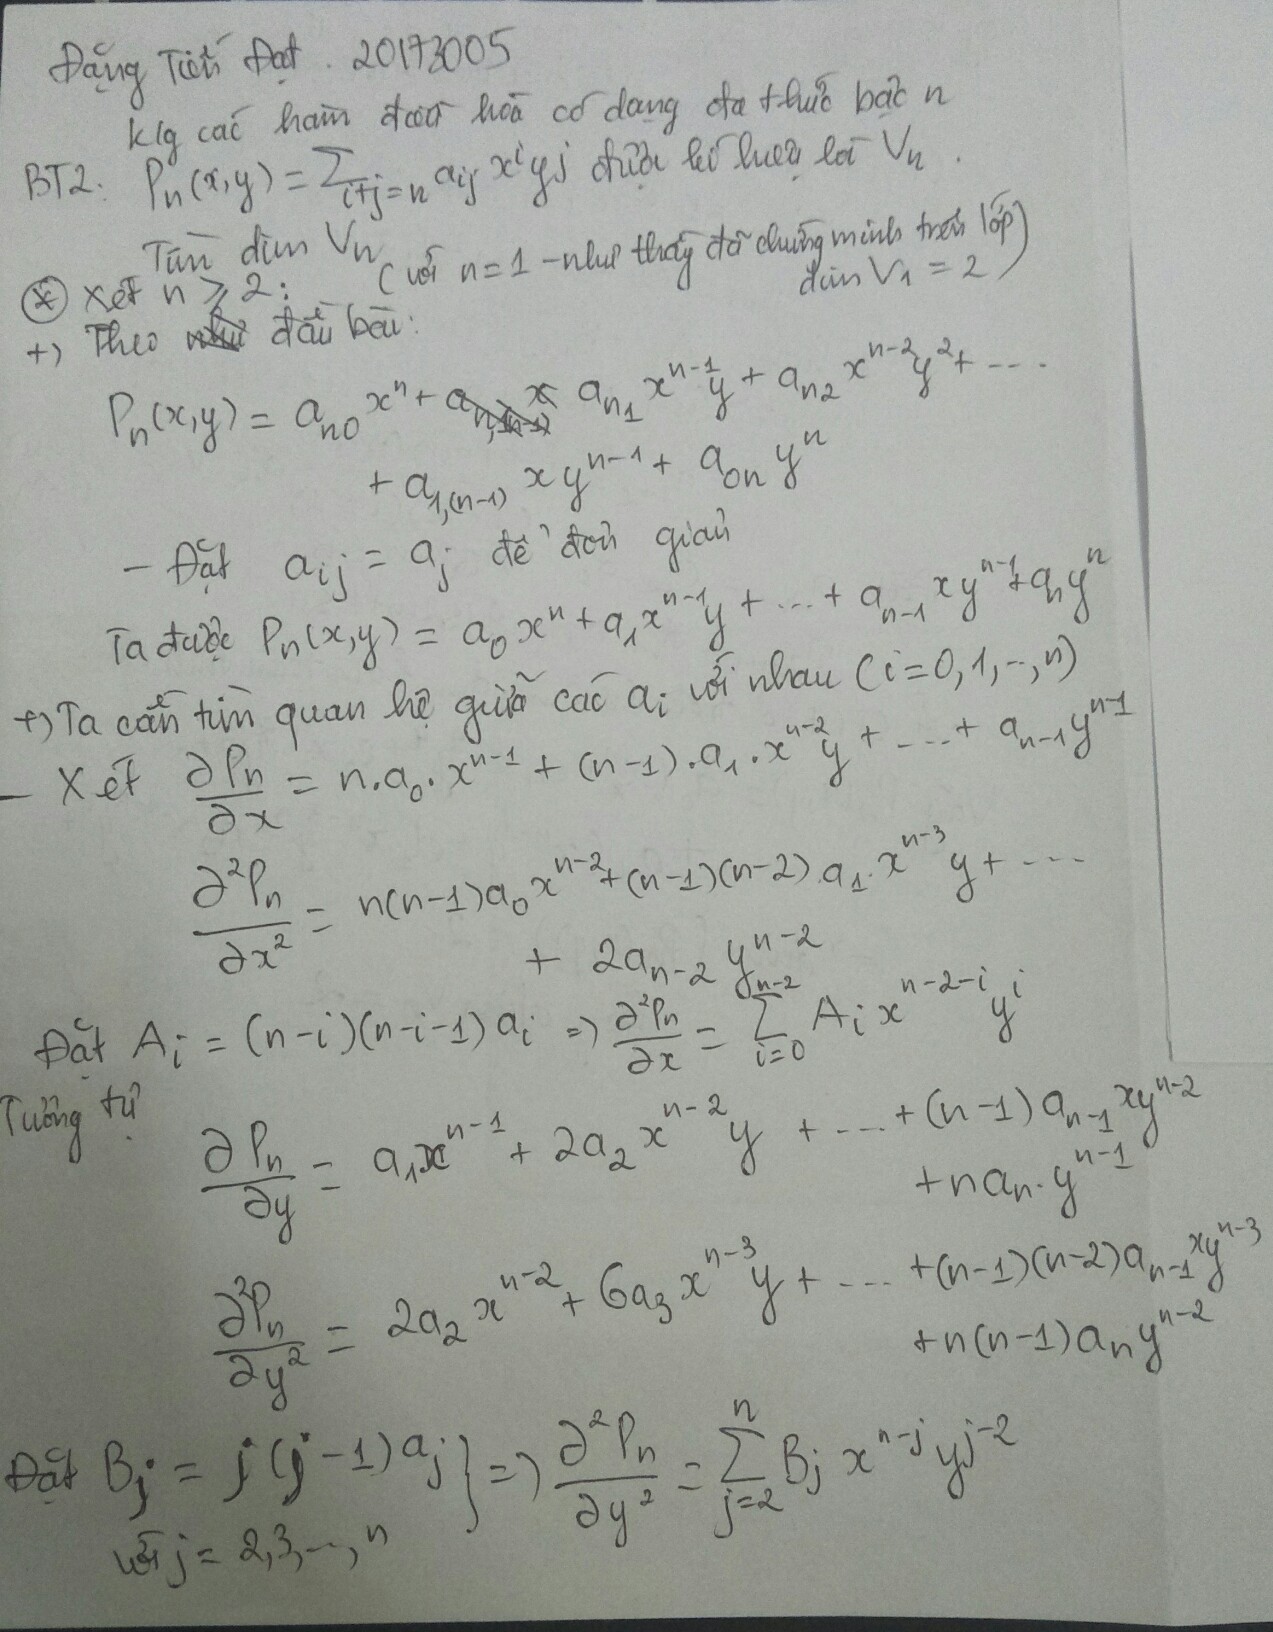 Đặng Tiến Đạt . 20173005
k/g các hàm điều hoà có dạng đa thức bậc n
BT2. Pₙ(x,y) = ∑_{i+j=n} a_{ij} xⁱ yʲ được kí hiệu là Vₙ .
Tìm dim Vₙ (với n=1 - như thầy đã chứng minh trên lớp)
dim V₁ = 2
⊛ Xét n ≥ 2:
+) Theo đầu bài:
Pₙ(x,y) = a_{n0} xⁿ + a_{n1} xⁿ⁻¹y + a_{n2} xⁿ⁻²y² + ....
+ a_{1,(n-1)} x yⁿ⁻¹ + a_{0n} yⁿ
- Đặt a_{ij} = a_j để đơn giản
Ta được Pₙ(x,y) = a₀xⁿ + a₁xⁿ⁻¹y + ... + a_{n-1} xyⁿ⁻¹ + aₙyⁿ
+) Ta cần tìm quan hệ giữa các aᵢ với nhau (i=0,1,..,n)
- Xét ∂Pₙ/∂x = n.a₀.xⁿ⁻¹ + (n-1).a₁.xⁿ⁻²y + ....+ a_{n-1}yⁿ⁻¹
∂²Pₙ/∂x² = n(n-1)a₀xⁿ⁻² + (n-1)(n-2).a₁.xⁿ⁻³y + ....
+ 2a_{n-2} yⁿ⁻²
Đặt Aᵢ = (n-i)(n-i-1)aᵢ => ∂²Pₙ/∂x = ∑_{i=0}^{n-2} Aᵢ x^{n-2-i} yⁱ
Tương tự
∂Pₙ/∂y = a₁xⁿ⁻¹ + 2a₂xⁿ⁻²y + ....+ (n-1)a_{n-1}xyⁿ⁻²
+ naₙ.yⁿ⁻¹
∂²Pₙ/∂y² = 2a₂xⁿ⁻² + 6a₃xⁿ⁻³y + .... + (n-1)(n-2)a_{n-1}xyⁿ⁻³
+ n(n-1)aₙyⁿ⁻²
Đặt Bⱼ = j(j-1)aⱼ } => ∂²Pₙ/∂y² = ∑_{j=2}^{n} Bⱼ x^{n-j} y^{j-2}
với j = 2,3,...,n